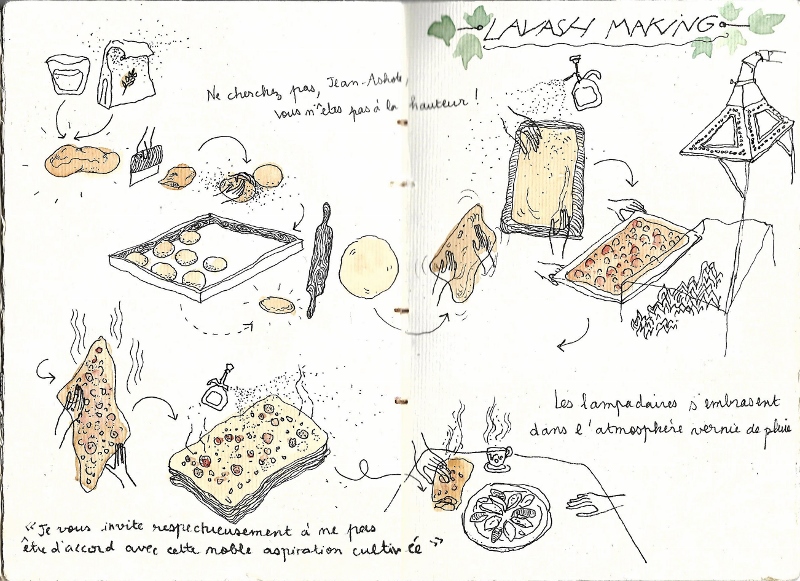 LAVASH MAKING
Ne cherchez pas, Jean-Ashole,
vous n'êtes pas à la hauteur !
Les lampadaires s'embrasent
dans l'atmosphère vernie de pluie
"Je vous invite respectueusement à ne pas
être d'accord avec cette noble aspiration cultivée"